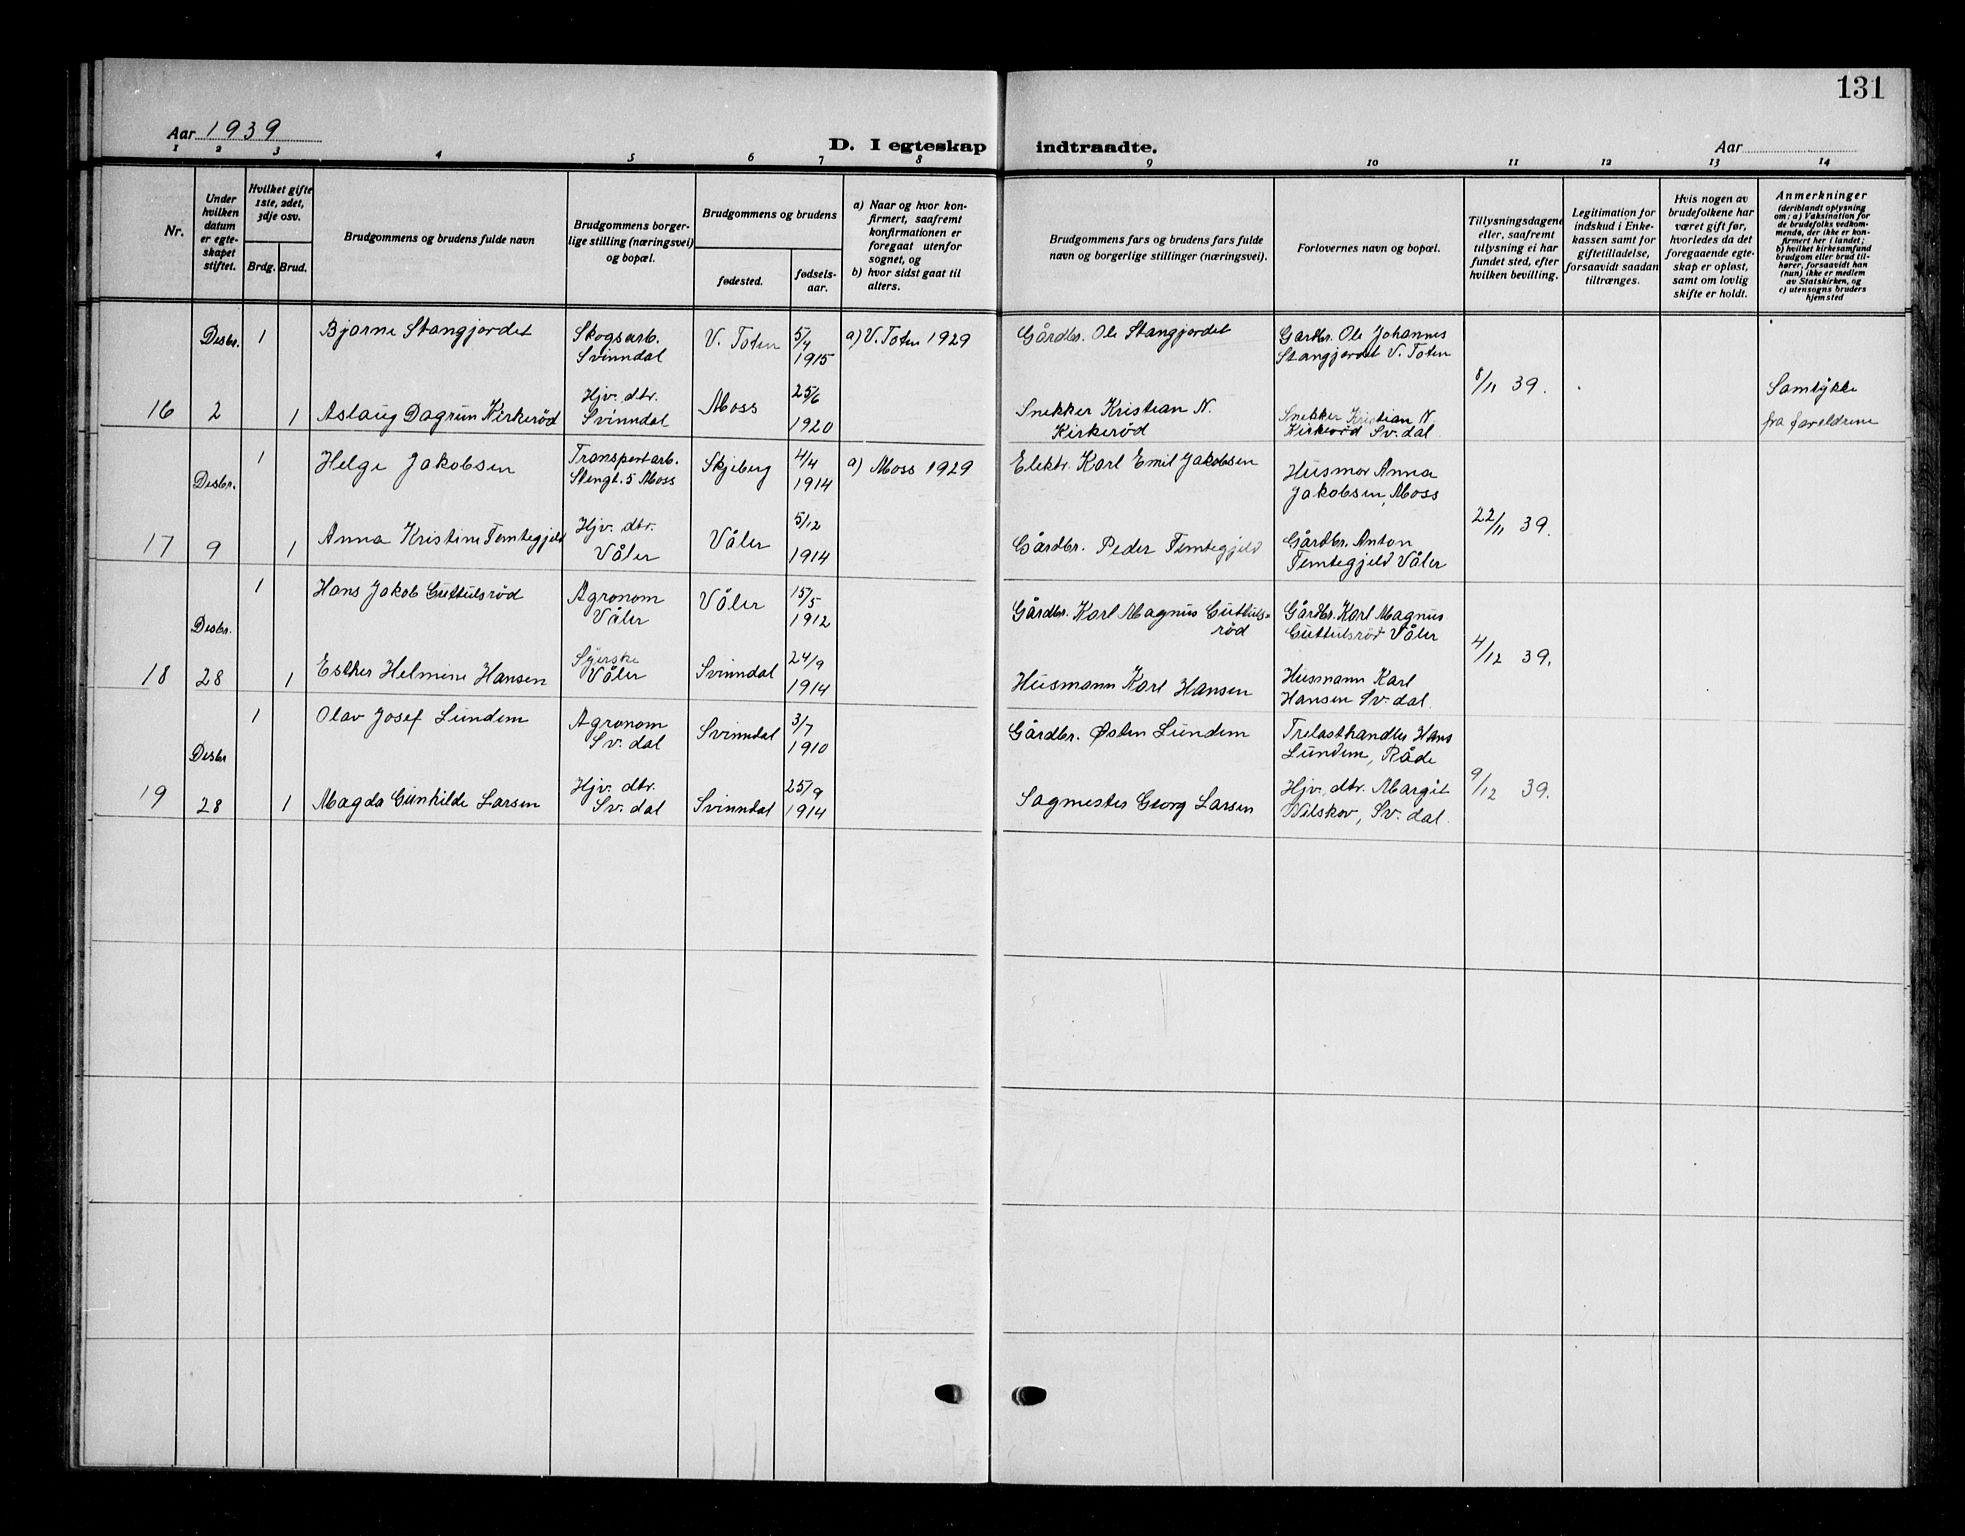 131
Aar 1939
D. I egteskap indtraadte.
Aar
1 2 3 4 5 6 7 8 9 10 11 12 13 14
Nr.
Under
hvilken
datum
er egte-
skapet
stiftet.
Hvilket gifte
1ste, 2det,
3dje osv.
Brdg. Brud.
Brudgommens og brudens fulde navn
Brudgommens borger-
lige stilling (næringsvei)
og bopæl.
Brudgommens og brudens
fødested.
fødsels-
aar.
a) Naar og hvor kon-
firmert, saafremt
konfirmationen er
foregaat utenfor
sognet, og
b) hvor sidst gaat til
alters.
Brudgommens fars og brudens fars fulde
navn og borgerlige stillinger (næringsvei).
Forlovernes navn og bopæl.
Tillysningsdagene
eller, saafremt
tillysning ei har
fundet sted, efter
hvilken bevilling.
Legitimation for
indskud i Enke-
kassen samt for
giftetilladelse,
forsaavidt saadan
tiltrænges.
Hvis nogen av
brudefolkene har
været gift før,
hvorledes da det
foregaaende egte-
skap er opløst,
samt om lovlig
skifte er holdt.
Anmerkninger
(deriblandt oplysning
om: a) Vaksination for
de brudefolks vedkom-
mende, der ikke er kon-
firmert her i landet;
b) hvilket kirkesamfund
brudgom eller brud til-
hører, forsaavidt han
(hun) ikke er medlem
av Statskirken, og
c) utensogns bruders
hjemsted
Desbr. 1 Bjarne Stangjordet
Skogsarb.
Svinndal
V. Toten
5/4
1915
a) V. Toten 1929
Gårdbr. Ole Stangjordet
Gardbr. Ole Johannes
Stangjordet V. Toten
8/11 39.
16 2 1 Aslaug Dagrun Kirkerød
Hjv. dtr.
Svinndal
Moss
25/6
1920
Snekker Kristian N.
Kirkerød
Snekker Kristian N
Kirkerød Sv. dal
Samtykke
fra foreldrene
Desbr. 1 Helge Jakobsen
Transportarb.
Stengt. 5 Moss
Skjeberg
4/4
1914
a) Moss 1929
Elektr. Karl Emil Jakobsen
Husmor Anna
Jakobsen, Moss
22/11 39.
17 9 1 Anna Kristine Temtegjeld
Hjv. dtr.
Våler
Våler
5/12
1914
Gårdbr. Peder Temtegjeld
Gårdbr. Anton
Temtegjeld Våler
Desbr. 1 Hans Jakob Guttulsrød
Agronom
Våler
Våler
15/5
1912
Gårdbr. Karl Magnus Guttuls-
rød
Gårdbr. Karl Magnus
Guttulsrød Våler
4/12 39.
18 28 1 Esther Helmine Hansen
Syerske
Våler
Svinndal
24/9
1914
Husmann Karl Hansen
Husmann Karl
Hansen Sv. dal.
Desbr 1 Olav Josef Lundem
Agronom
Sv. dal
Svinndal
3/7
1910
Gårdbr. Østen Lundem
Trelasthandler Hans
Lundem, Råde
9/12 39.
19 28 1 Magda Gunhilde Larsen
Hjv. dtr.
Sv. dal
Svinndal
25/9
1914
Sagmester Georg Larsen
Hjv. dtr. Margit
Wilskov, Sv. dal.